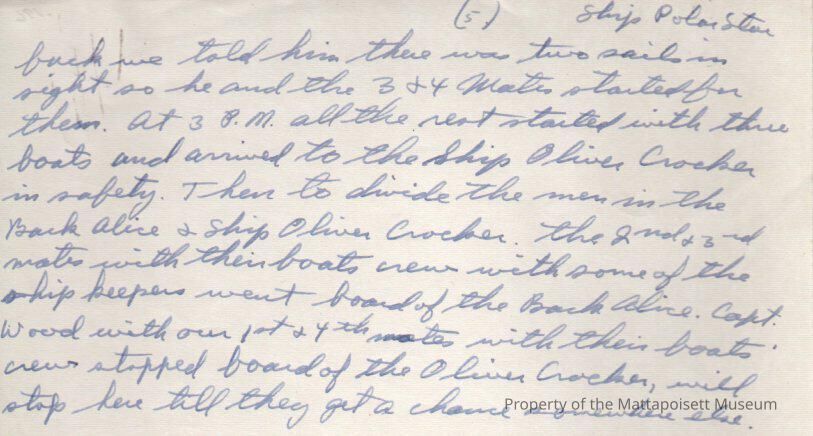 (5,) Ship Polar Star
back we told him there was two sails in
sight so he and the 3 & 4 Mates started for
them. At 3 P.M. all the rest started with three
boats and arrived to the Ship Oliver Crocker
in safety. Then to divide the men in the
Bark Alice & Ship Oliver Crocker. The 2nd & 3rd
mates with their boats crew with some of the
ship keepers went board of the Bark Alice. Capt.
Wood with our 1st & 4th mates with their boats
crew stopped board of the Oliver Crocker, will
stop here till they get a chance somewhere else.
Property of the Mattapoisett Museum